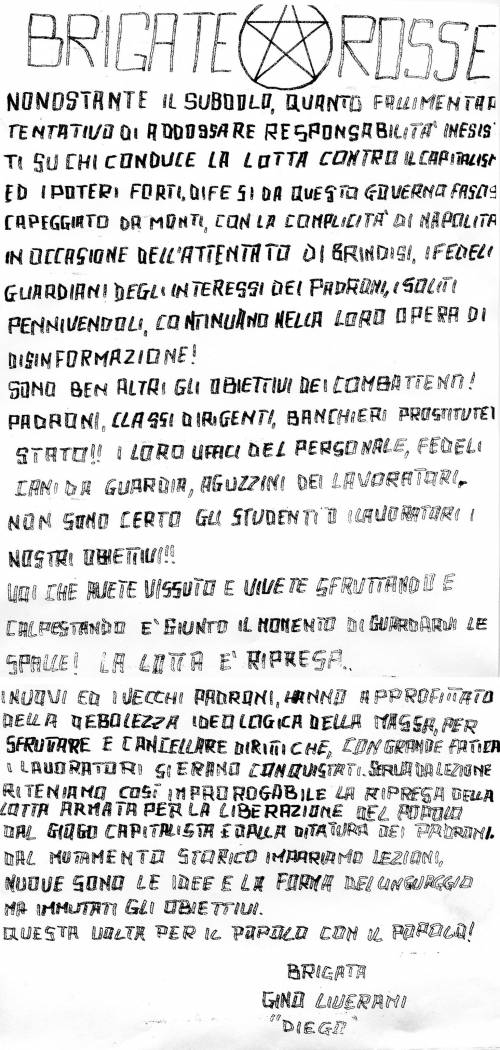 BRIGATE ROSSE
NONOSTANTE IL SUBDOLO, QUANTO FALLIMENTAR
TENTATIVO DI ADDOSSARE RESPONSABILITA' INESIS
TI SU CHI CONDUCE LA LOTTA CONTRO IL CAPITALISM
ED I POTERI FORTI, DIFESI DA QUESTO GOVERNO FASCIS
CAPEGGIATO DA MONTI, CON LA COMPLICITA' DI NAPOLITA
IN OCCASIONE DELL'ATTENTATO DI BRINDISI, I FEDELI
GUARDIANI DEGLI INTERESSI DEI PADRONI, I SOLITI
PENNIVENDOLI, CONTINUANO NELLA LORO OPERA DI
DISINFORMAZIONE!
SONO BEN ALTRI GLI OBIETTIVI DEI COMBATTENTI!
PADRONI, CLASSI DIRIGENTI, BANCHIERI PROSTITUTEI
STATO!! I LORO UFFICI DEL PERSONALE, FEDELI
CANI DA GUARDIA, AGUZZINI DEI LAVORATORI,
NON SONO CERTO GLI STUDENTI O I LAVORATORI I
NOSTRI OBIETTIVI!!
VOI CHE AVETE VISSUTO E VIVETE SFRUTTANDO E
CALPESTANDO E' GIUNTO IL MOMENTO DI GUARDARVI LE
SPALLE! LA LOTTA E' RIPRESA..
I NUOVI ED I VECCHI PADRONI, HANNO APPROFITTATO
DELLA DEBOLEZZA IDEOLOGICA DELLA MASSA, PER
SFRUTTARE E CANCELLARE DIRITTI CHE, CON GRANDE FATICA
I LAVORATORI SI ERANO CONQUISTATI. SERVA DA LEZIONE
RITENIAMO COSI' IMPROROGABILE LA RIPRESA DELLA
LOTTA ARMATA PER LA LIBERAZIONE DEL POPOLO
DAL GIOGO CAPITALISTA E DALLA DITATURA DEI PADRONI.
DAL MUTAMENTO STORICO IMPARIAMO LEZIONI,
NUOVE SONO LE IDEE E LA FORMA DEL LINGUAGGIO
MA IMMUTATI GLI OBIETTIVI.
QUESTA VOLTA PER IL POPOLO CON IL POPOLO!
BRIGATA
GINO LIVERANI
"DIEGO"